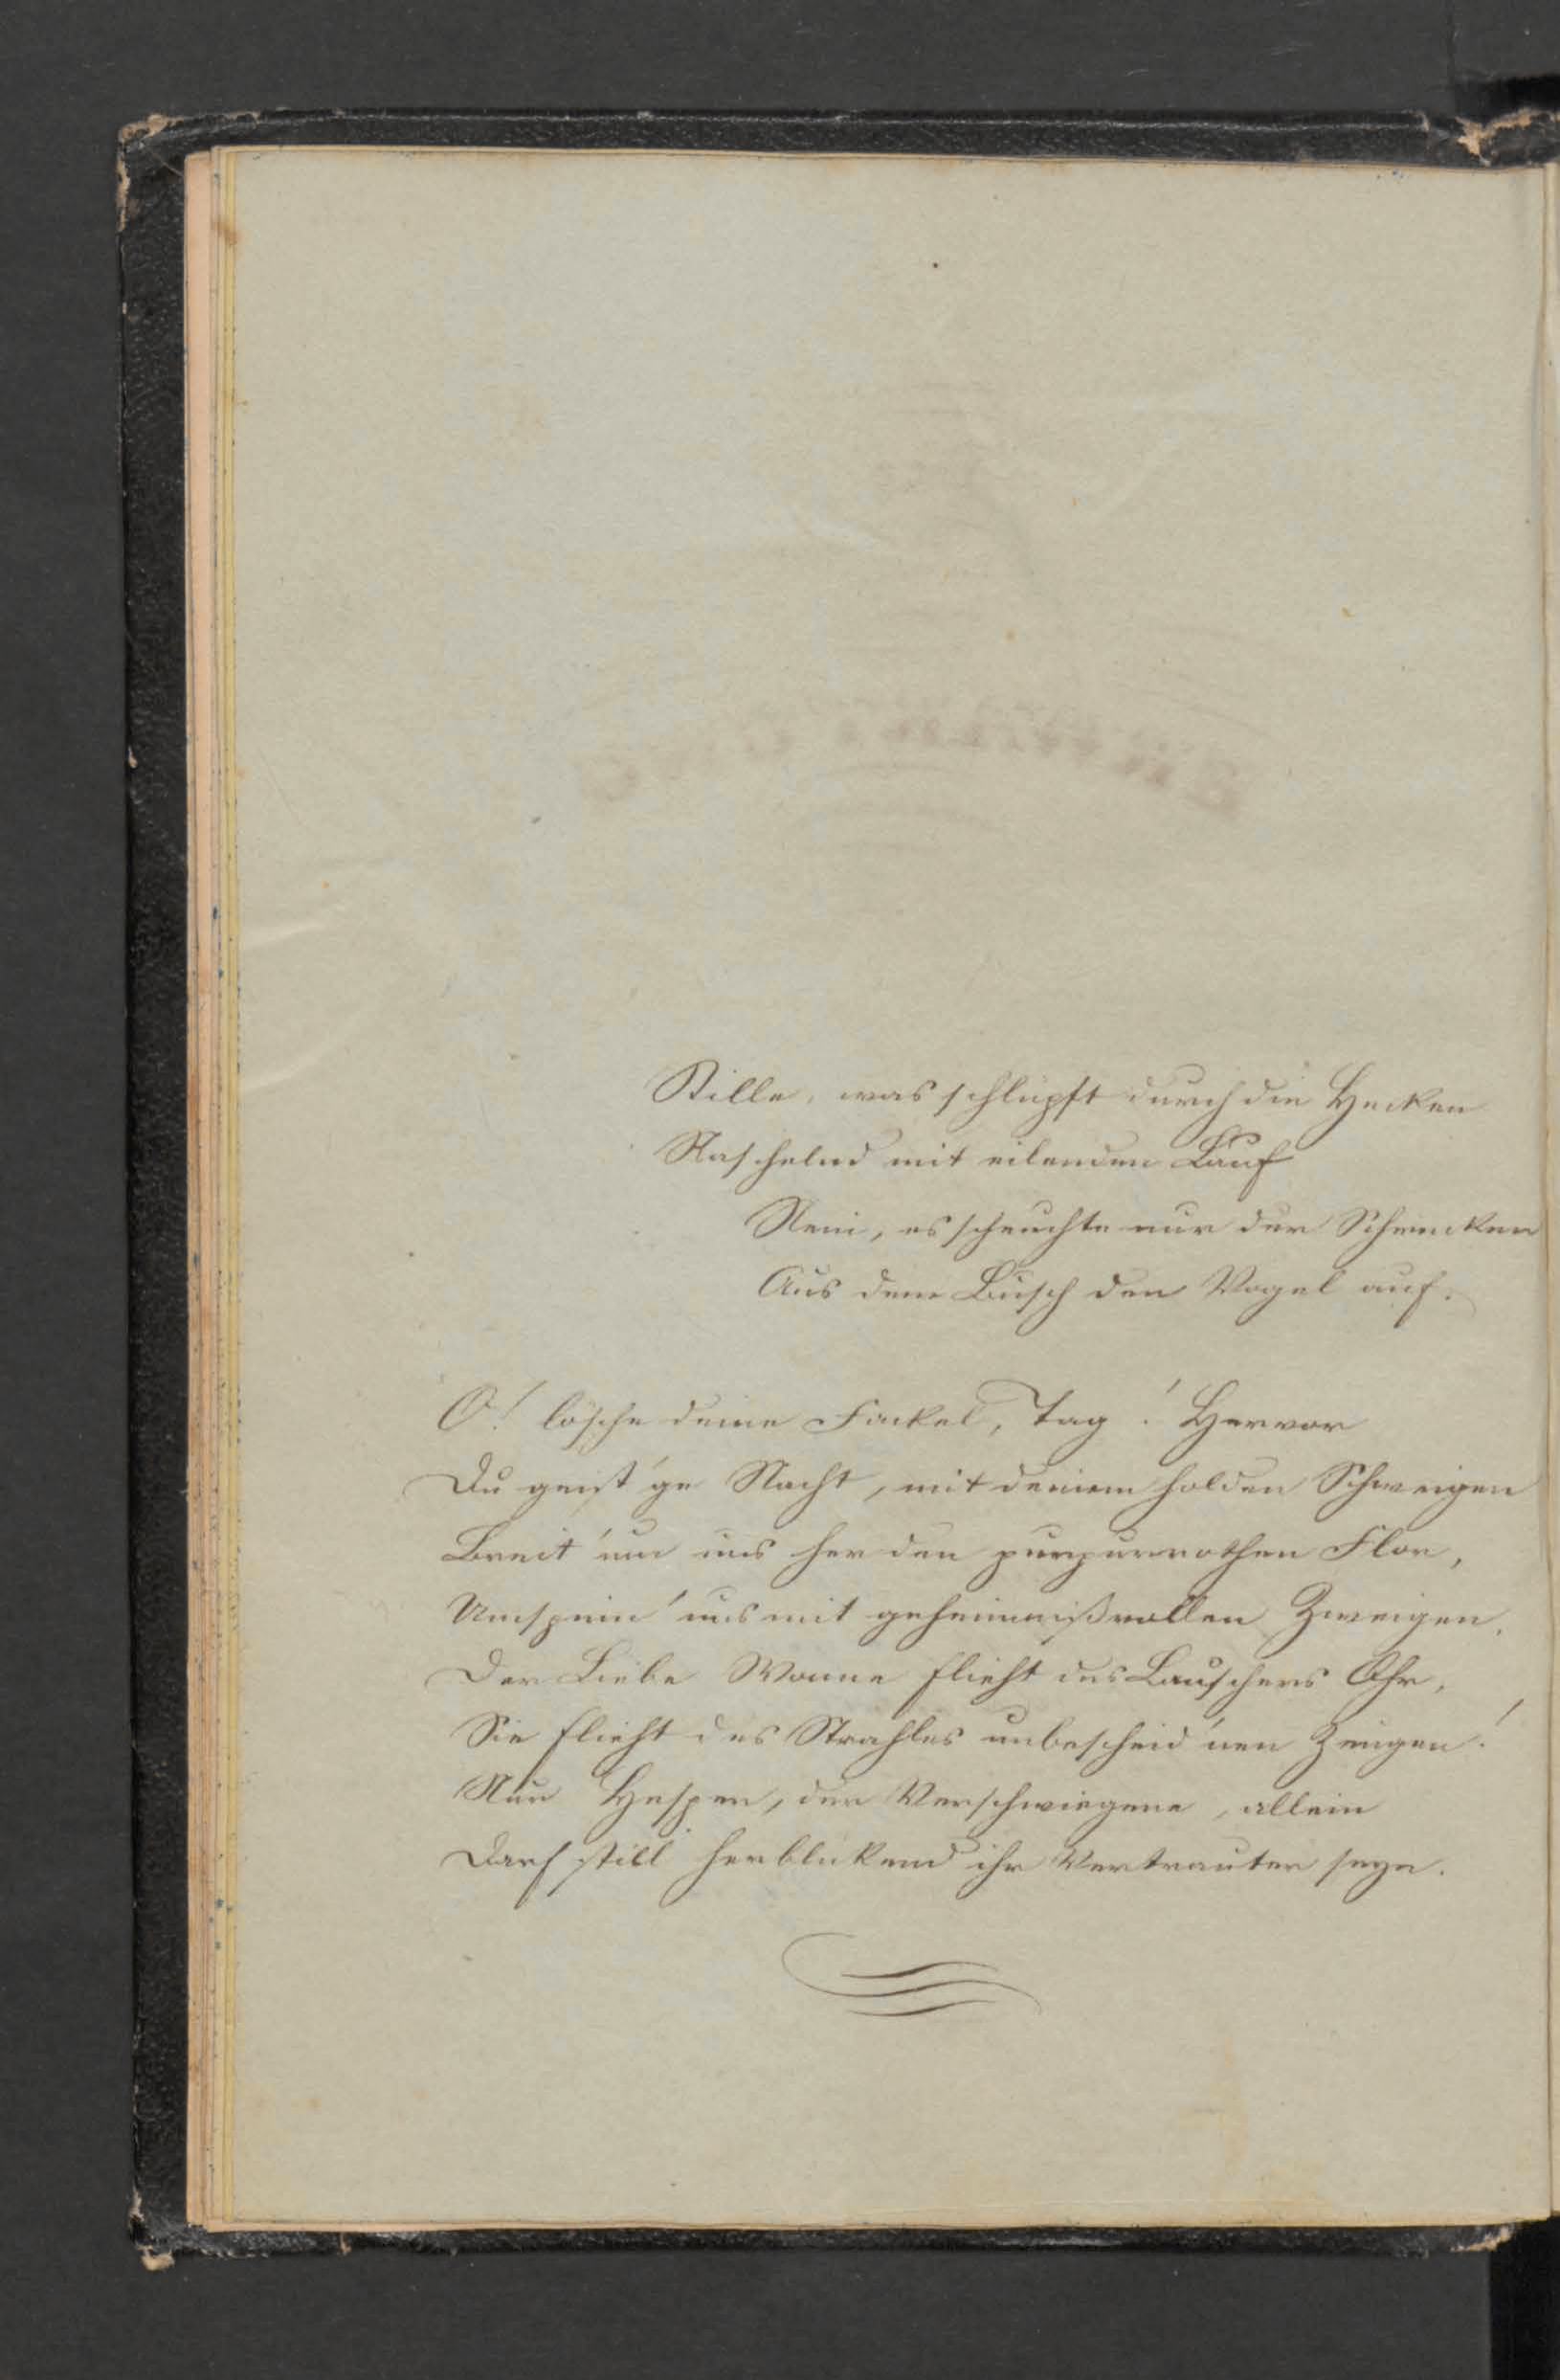 Stille, was schlüpft durch die Hecken
Raschelnd mit eilenden Lauf
Nein, es scheuchte nur der Schrecken
Aus dem Busch den Vogel auf.
O! lösche deine Fackel, Tag! Hervor
Du geist'ge Nacht, mit deinem holden Schweigen
Breit' um uns her den purpurrothen Flor,
Umspinn' uns mit geheimnißvollen Zweigen.
Der Liebe Wonne flieht des Lauschers Ohr,
Sie flieht des Strahles unbescheid'nen Zeugen!
Nur Hesper, der Verschwiegene, allein
Darf still herblickend ihr Vertrauter seyn.